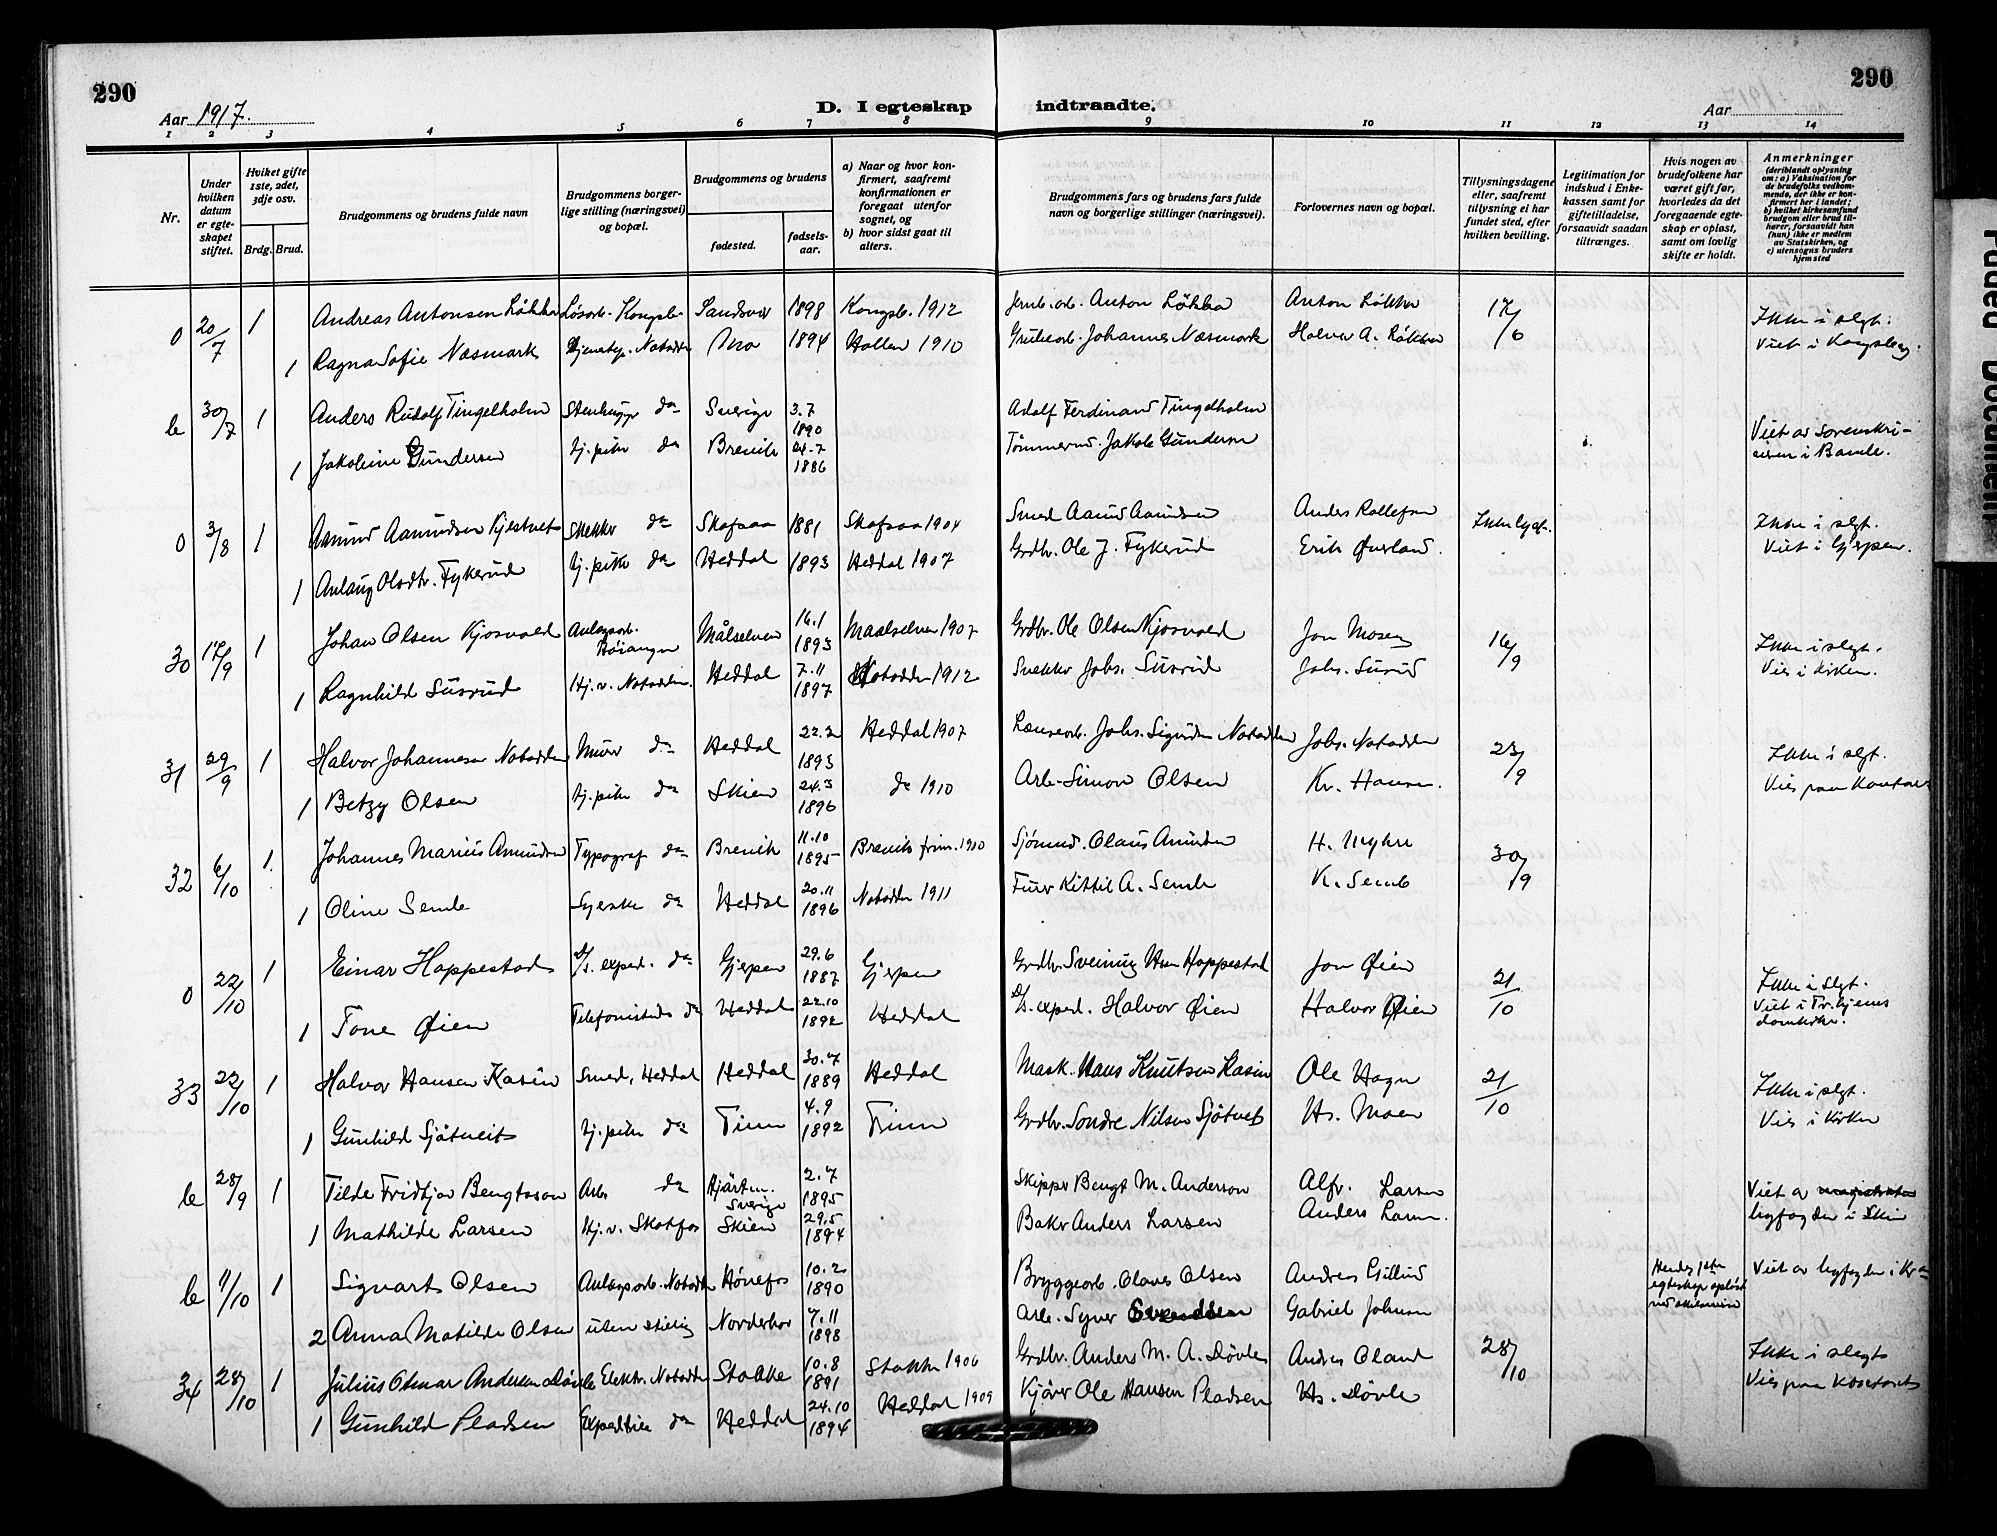 290
290
Aar 1917.
D. I egteskap indtraadte.
Aar
1 2 3 4 5 6 7 8 9 10 11 12 13 14
Nr.
Under hvilken datum er egteskapet stiftet.
Hviket gifte 1ste, 2det, 3dje osv.
Brdg. Brud.
Brudgommens og brudens fulde navn
Brudgommens borgerlige stilling (næringsvei) og bopæl.
Brudgommens og brudens
fødested.
fødselsaar.
a) Naar og hvor konfirmert, saafremt konfirmationen er foregaat utenfor sognet, og
b) hvor sidst gaat til alters.
Brudgommens fars og brudens fars fulde navn og borgerlige stillinger (næringsvei).
Forlovernes navn og bopæl.
Tillysningsdagene eller, saafremt tillysning ei har fundet sted, efter hvilken bevilling.
Legitimation for indskud i Enkekassen samt for giftetilladelse, forsaavidt saadan tiltrænges.
Hvis nogen av brudefolkene har været gift før, hvorledes da det foregaaende egteskap er opløst, samt om lovlig skifte er holdt.
Anmerkninger (deriblandt oplysning om: a) Vaksination for de brudefolks vedkommende, der ikke er konfirmert her i landet; b) hvilket kirkesamfund brudgom eller brud tilhører, forsaavidt han (hun) ikke er medlem av Statskirken, og c) utensogns bruders hjemsted
0 20/7 1 Andreas Antonsen Løkka Løsarb. Kongsb. Sandsvær 1898 Kongsb. 1912 Jernb.arb. Anton Løkka Anton Løkka 17/6 Ikke i slegt.
1 Ragna Sofie Næsmark Notodden 1894 Hollen 1910 Grubearb. Johannes Næsmark Halvor A. Løkka Viet i Kongsberg.
b 30/7 1 Anders Rudolf Tingelholm Stenhugger do Sverige 3.7 1890 Adolf Ferdinand Tingelholm
1 Jakobine Gundersen Tj.pike do Brevik 24.7 1886 Tømmerm. Jakob Gundersen Viet av Sorenskriveren i Bamle.
0 3/8 1 Aamund Aamundsen Kjestveit Snekker do Skafsaa 1881 Skafsaa 1904 Smed Aamund Aamundsen Anders Rollefsen Ikke lyst. Ikke i slegt.
1 Anlaug Olsdtr. Fykerud Tj.pike do Heddal 1893 Heddal 1907 Grdbr. Ole J. Fykerud Erik Øverland. Viet i Gjerpen.
30 17/9 1 Johan Olsen Kjosvold Anlægsarb. Høianger Målselven 16.1 1893 Maalselven 1907 Grdbr. Ole Olsen Kjosvold Jon Mosen 16/9 Ikke i slegt.
1 Ragnhild Susrud Hj. v. Notodden. Heddal 7.11 1897 Notodden 1912 Snekker Johs. Susrud Johs. Susrud Vies i kirken.
31 29/9 1 Halvor Johannesen Notodden Murer do Heddal 22.2 1893 Heddal 1907 Johs. Sigurdsen Notodden Johs. Notodden 23/9 Ikke i slegt.
1 Betzy Olsen Tj.pike do Skien 24.3 1896 do 1910 Arb. Simon Olsen Kr. Hansen. Vies paa Kontoret
32 6/10 1. Johannes Marius Amundsen Typograf do Brevik 11.10 1895 Brevik 1910 Sjømand. Olaus Amundsen H. Myhre 30/9
1 Oline Semb Syerske do Heddal 20.11 1896 Notodden 1911 Furer Kittil A. Semb K. Semb
0 22/10 1 Einar Hoppestad D/s. exped. do Gjerpen 29.6 1887 Gjerpen Grdbr. Sveinung Hoppestad Jon Øien 21/10 Ikke i slegt.
1 Tone Øien Telefonistinde do Heddal 22.10 1892 Heddal D/s. exped. Halvor Øien Halvor Øien Viet i Tr.hjems domkirke.
33 22/10 1 Halvor Hansen Kasin Smed, Heddal Heddal 30.7 1889 Heddal Mask. Hans Knutsen Kasin Ole Hagen 21/10 Ikke i slegt.
1 Gunhild Sjøtveit Tj.pike do Tinn 4.9 1892 Tinn Grdbr. Sondre Nilsen Sjøtveit Hs. Moen Vies i Kirken
b 28/9 1 Tilde Fridtjov Bengtsson Arb. do Sverige 2.7 1895 Skipper Bengt M. Anderson Alfr. Larsen Viet av
1 Mathilde Larsen Hj. v. Skotfos Skien 29.5 1894 Baker Anders Larsen Anders Larsen. byfogden i Skien
b 11/10 1 Sigvart Olsen Anlægsarb. Notodden Hønefos 10.2 1890 Bryggearb. Olaves Olsen Andreas Hendes 1ste egteskap opløst ved skilsmisse Viet av byfogden i Kr.a
2 Anna Matilde Olsen uten stilling Norderhov 7.11 1898 Arb. Syver Svendsen Gabriel Johnsen
34 28/10 1 Julius Otmar Andersen Døvle Elektr. Notodden Stokke 10.8 1891 Stokke 1906 Grdbr. Anders M. A. Døvle Andreas Oland 28/10 Ikke i slegt
1 Gunhild Pladsen Expeditrice do Heddal 24.10 1894 Heddal 1909 Kjører Ole Hansen Pladsen Hs. Døvle Vies paa Kontoret
Faded Document